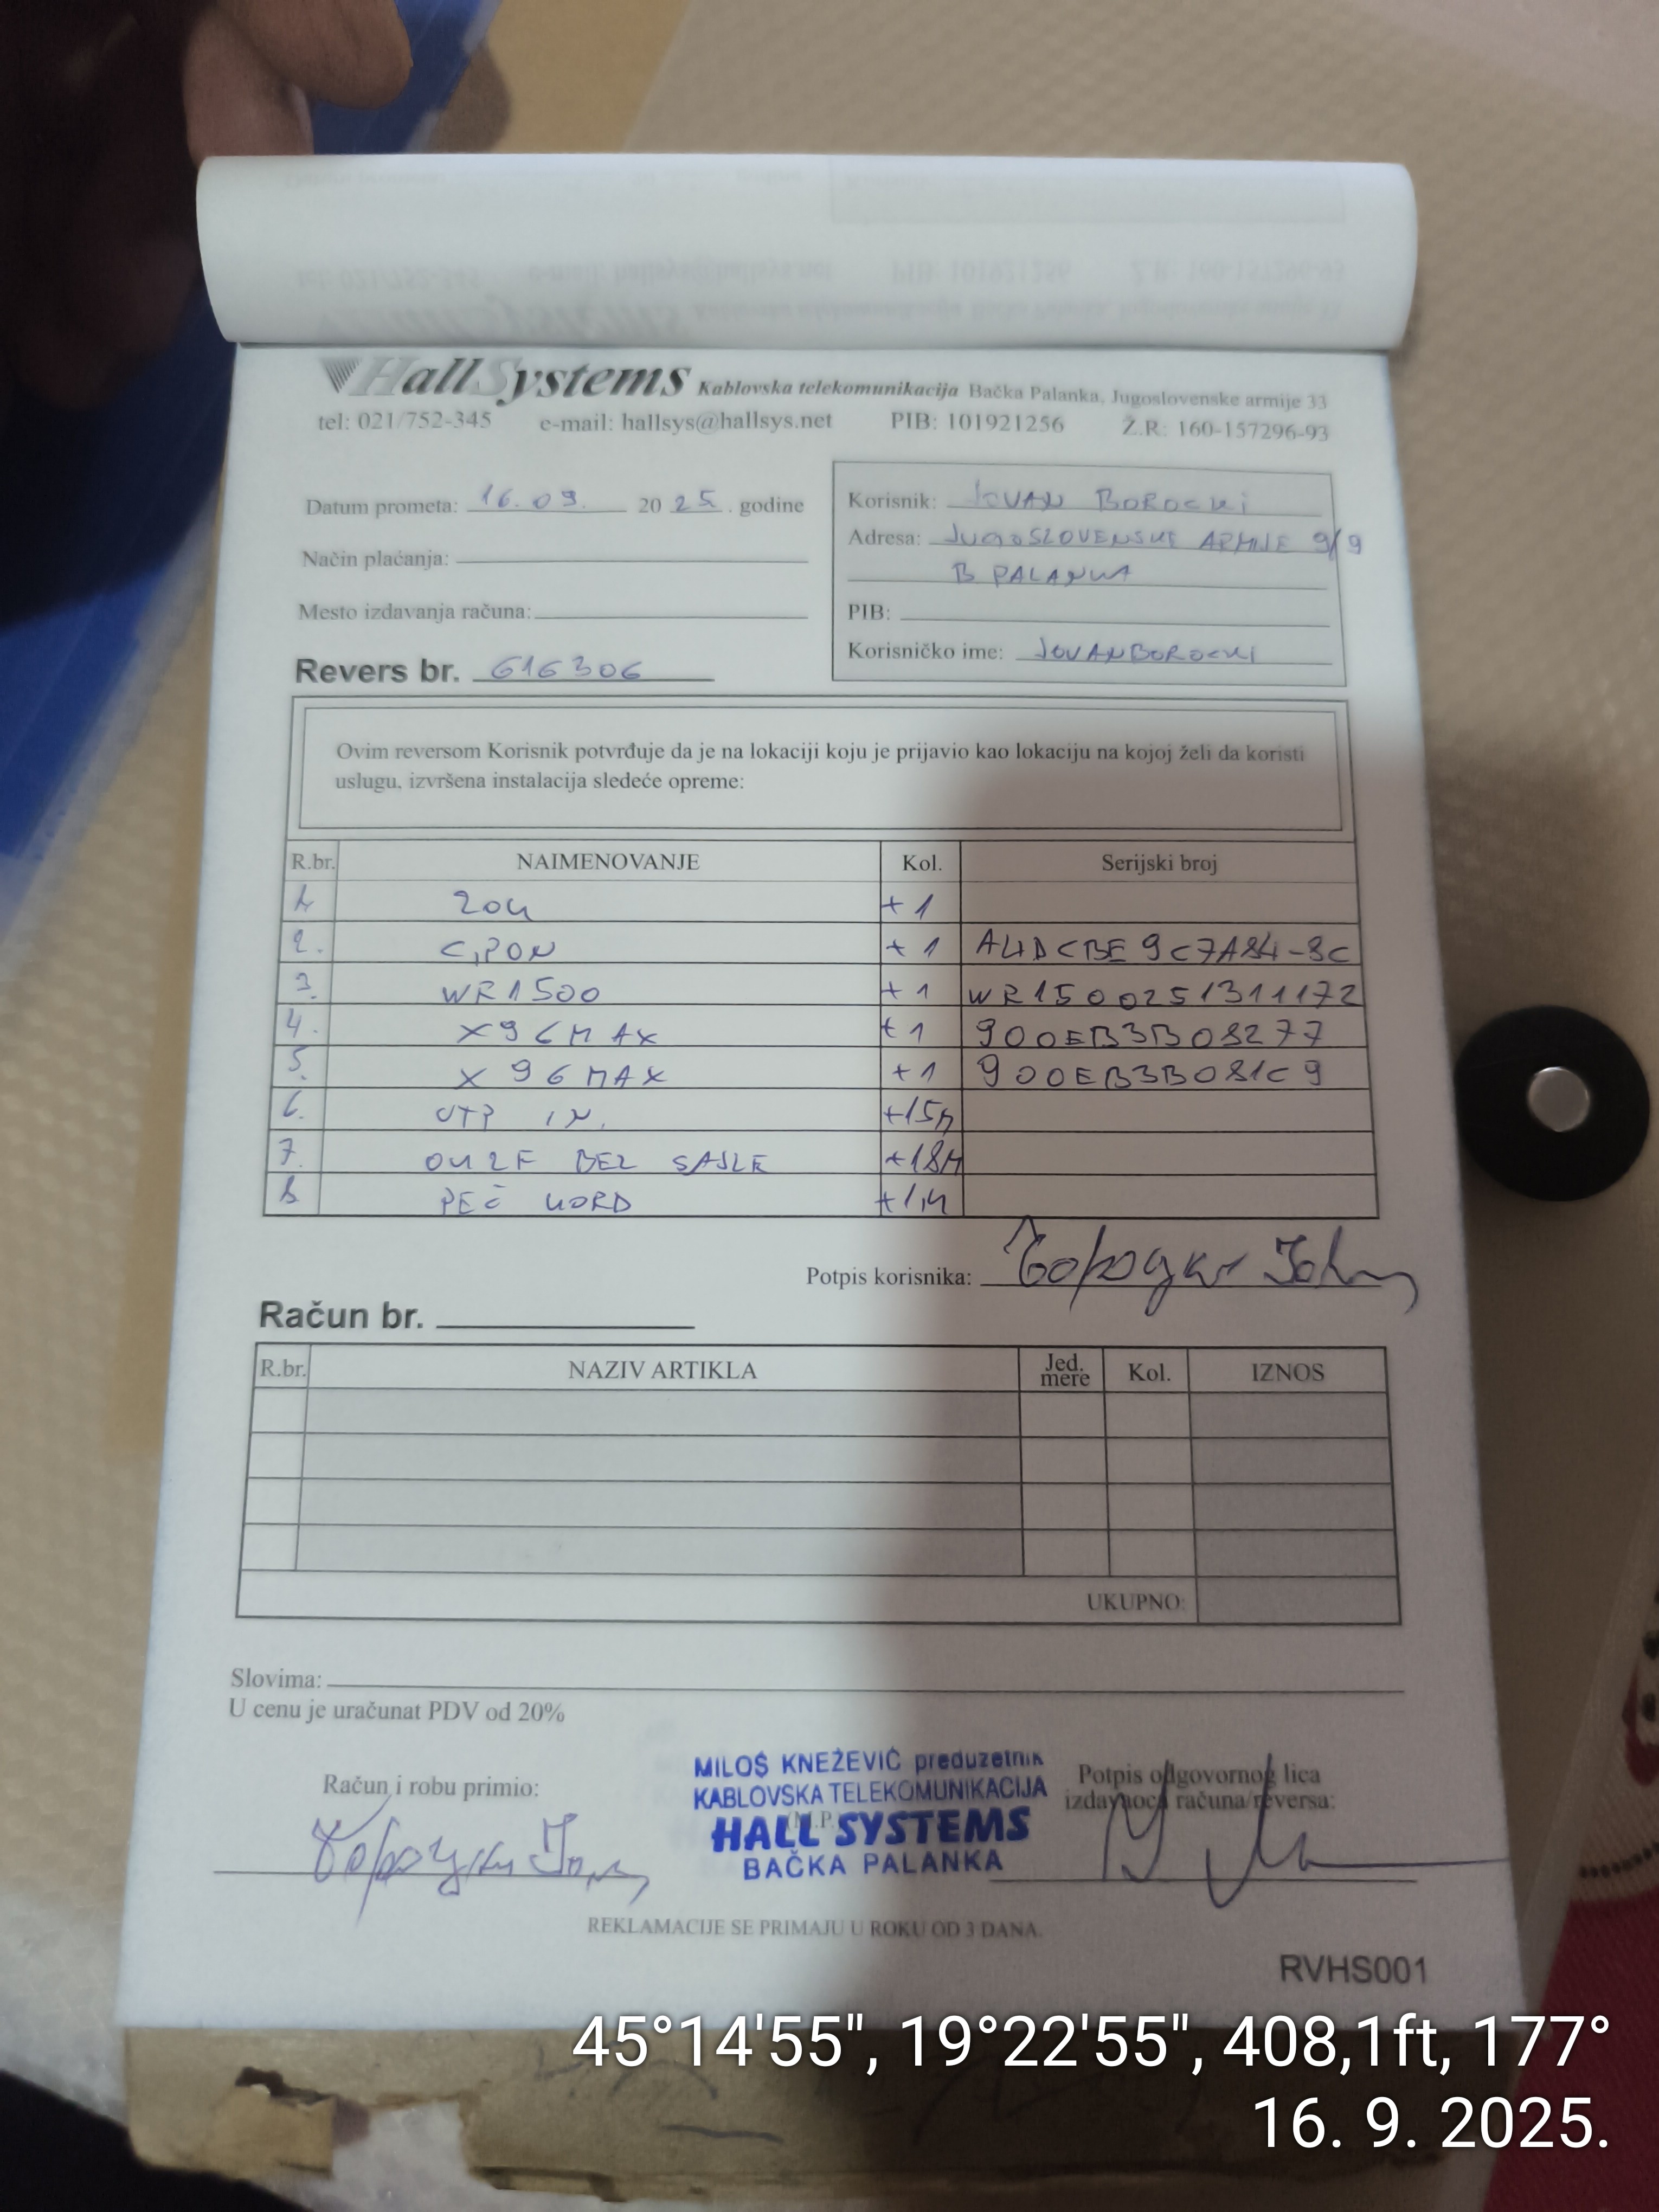 HallSystems Kablovska telekomunikacija Bačka Palanka, Jugoslovenske armije 33
tel: 021/752-345 e-mail: hallsys@hallsys.net PIB: 101921256 Ž.R: 160-157296-93
Datum prometa: 16.09. 2025. godine
Način plaćanja:
Mesto izdavanja računa:
Revers br. 616306
Korisnik: JOVAN BOROCKI
Adresa: JUGOSLOVENSKE ARMIJE 9/9
B PALANKA
PIB:
Korisničko ime: JOVANBOROCKI
Ovim reversom Korisnik potvrđuje da je na lokaciji koju je prijavio kao lokaciju na kojoj želi da koristi
uslugu, izvršena instalacija sledeće opreme:
R.br. NAIMENOVANJE Kol. Serijski broj
1. ZOK +1
2. GPON +1
3. WR1500 +1 WR1500251311172
4. X96MAX +1 900EB3B08277
5. X96MAX +1 900EB3B081C9
6. UTP IN. +15M
7. OK 2F BEZ SAJLE +18M
8 PEČ KORD +1M
Potpis korisnika:
Račun br.
R.br. NAZIV ARTIKLA Jed. mere Kol. IZNOS
UKUPNO:
Slovima:
U cenu je uračunat PDV od 20%
Račun i robu primio:
MILOŠ KNEŽEVIĆ preduzetnik
KABLOVSKA TELEKOMUNIKACIJA
(M.P.
HALL SYSTEMS
BAČKA PALANKA
Potpis odgovornog lica
izdavaoca računa/reversa:
REKLAMACIJE SE PRIMAJU U ROKU OD 3 DANA.
RVHS001
45°14'55", 19°22'55", 408,1ft, 177°
16. 9. 2025.